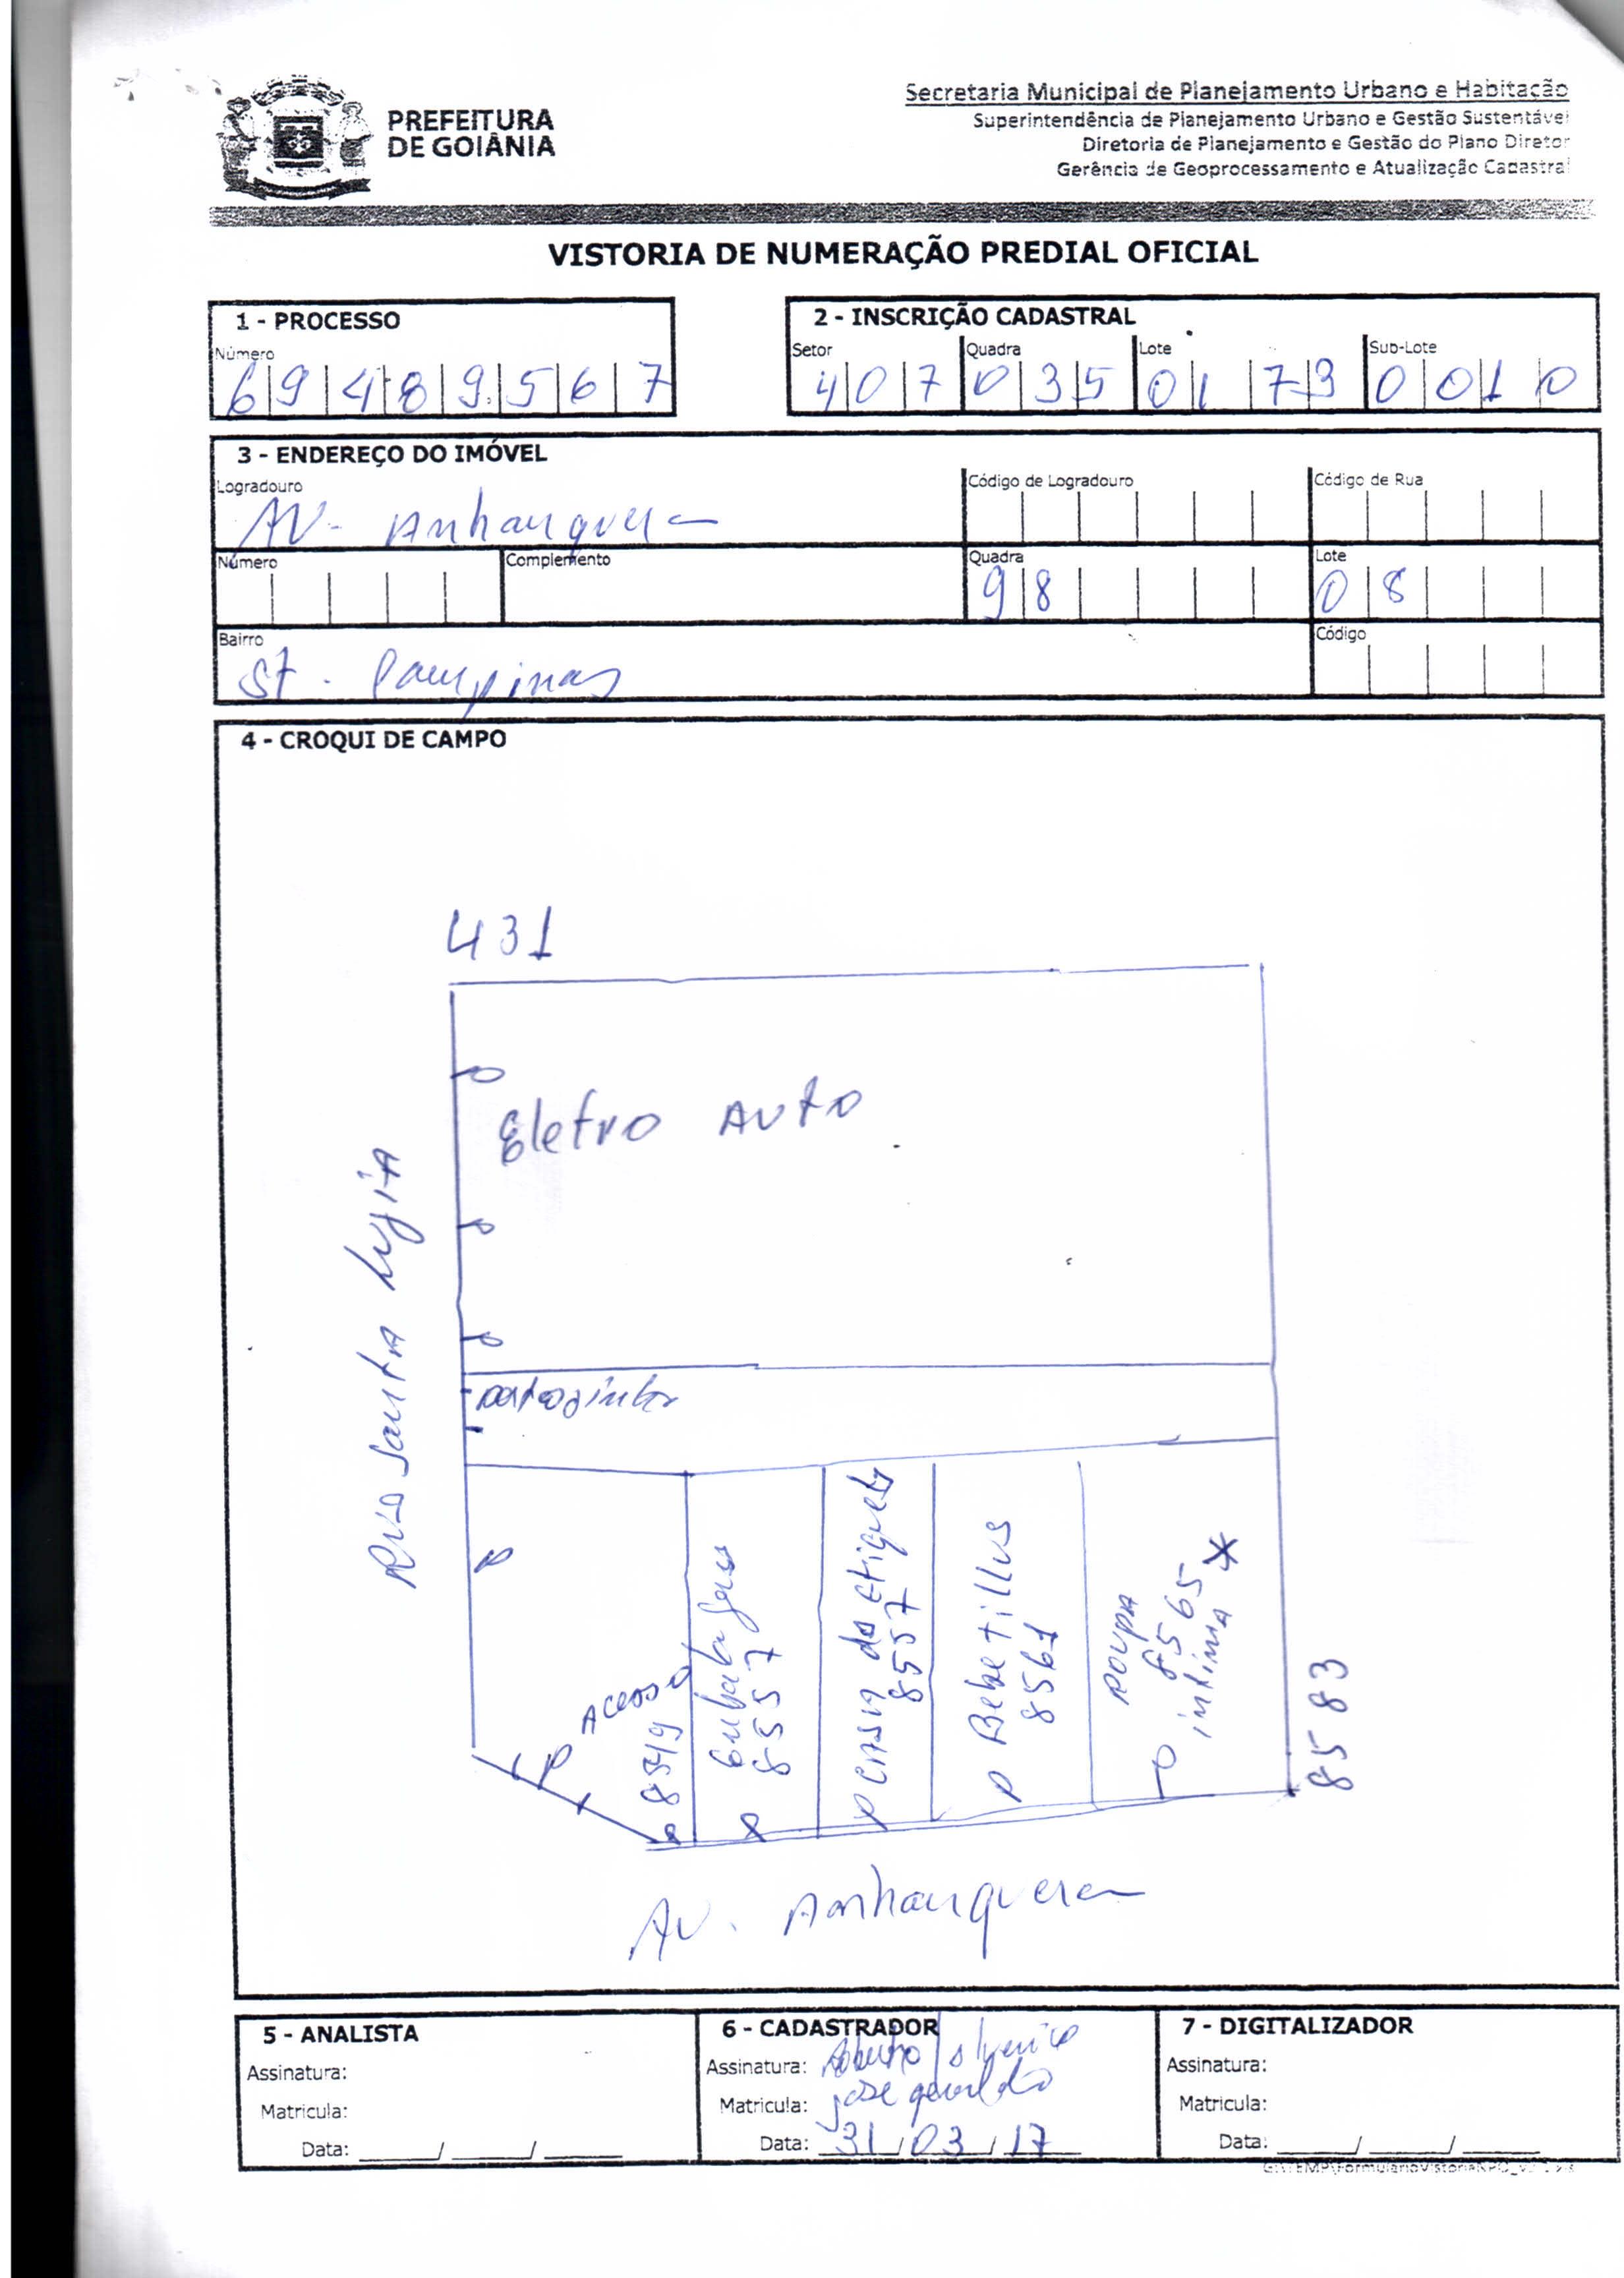 PREFEITURA
DE GOIÂNIA
Secretaria Municipal de Planejamento Urbano e Habitação
Superintendência de Planejamento Urbano e Gestão Sustentável
Diretoria de Planejamento e Gestão do Plano Diretor
Gerência de Geoprocessamento e Atualização Cadastral
VISTORIA DE NUMERAÇÃO PREDIAL OFICIAL
1 - PROCESSO
Número
69489567
2 - INSCRIÇÃO CADASTRAL
Setor Quadra Lote Sub-Lote
407 035 0173 0010
3 - ENDEREÇO DO IMÓVEL
Logradouro Código de Logradouro Código de Rua
AV- Anhanguera
Número Complemento Quadra Lote
98 08
Bairro Código
St. Campinas
4 - CROQUI DE CAMPO
431
Eletro Auto
Rua Santa Luzia
Acesso
8349
8557
Casa da Etiqueta
8557
Bebetillus
8561
Roupa
8565
intima *
8583
Av. Anhanguera
5 - ANALISTA
Assinatura:
Matricula:
Data: ___/___/___
6 - CADASTRADOR
Assinatura: Roberto
Matricula: jose geraldo
Data: 31/03/17
7 - DIGITALIZADOR
Assinatura:
Matricula:
Data: ___/___/___